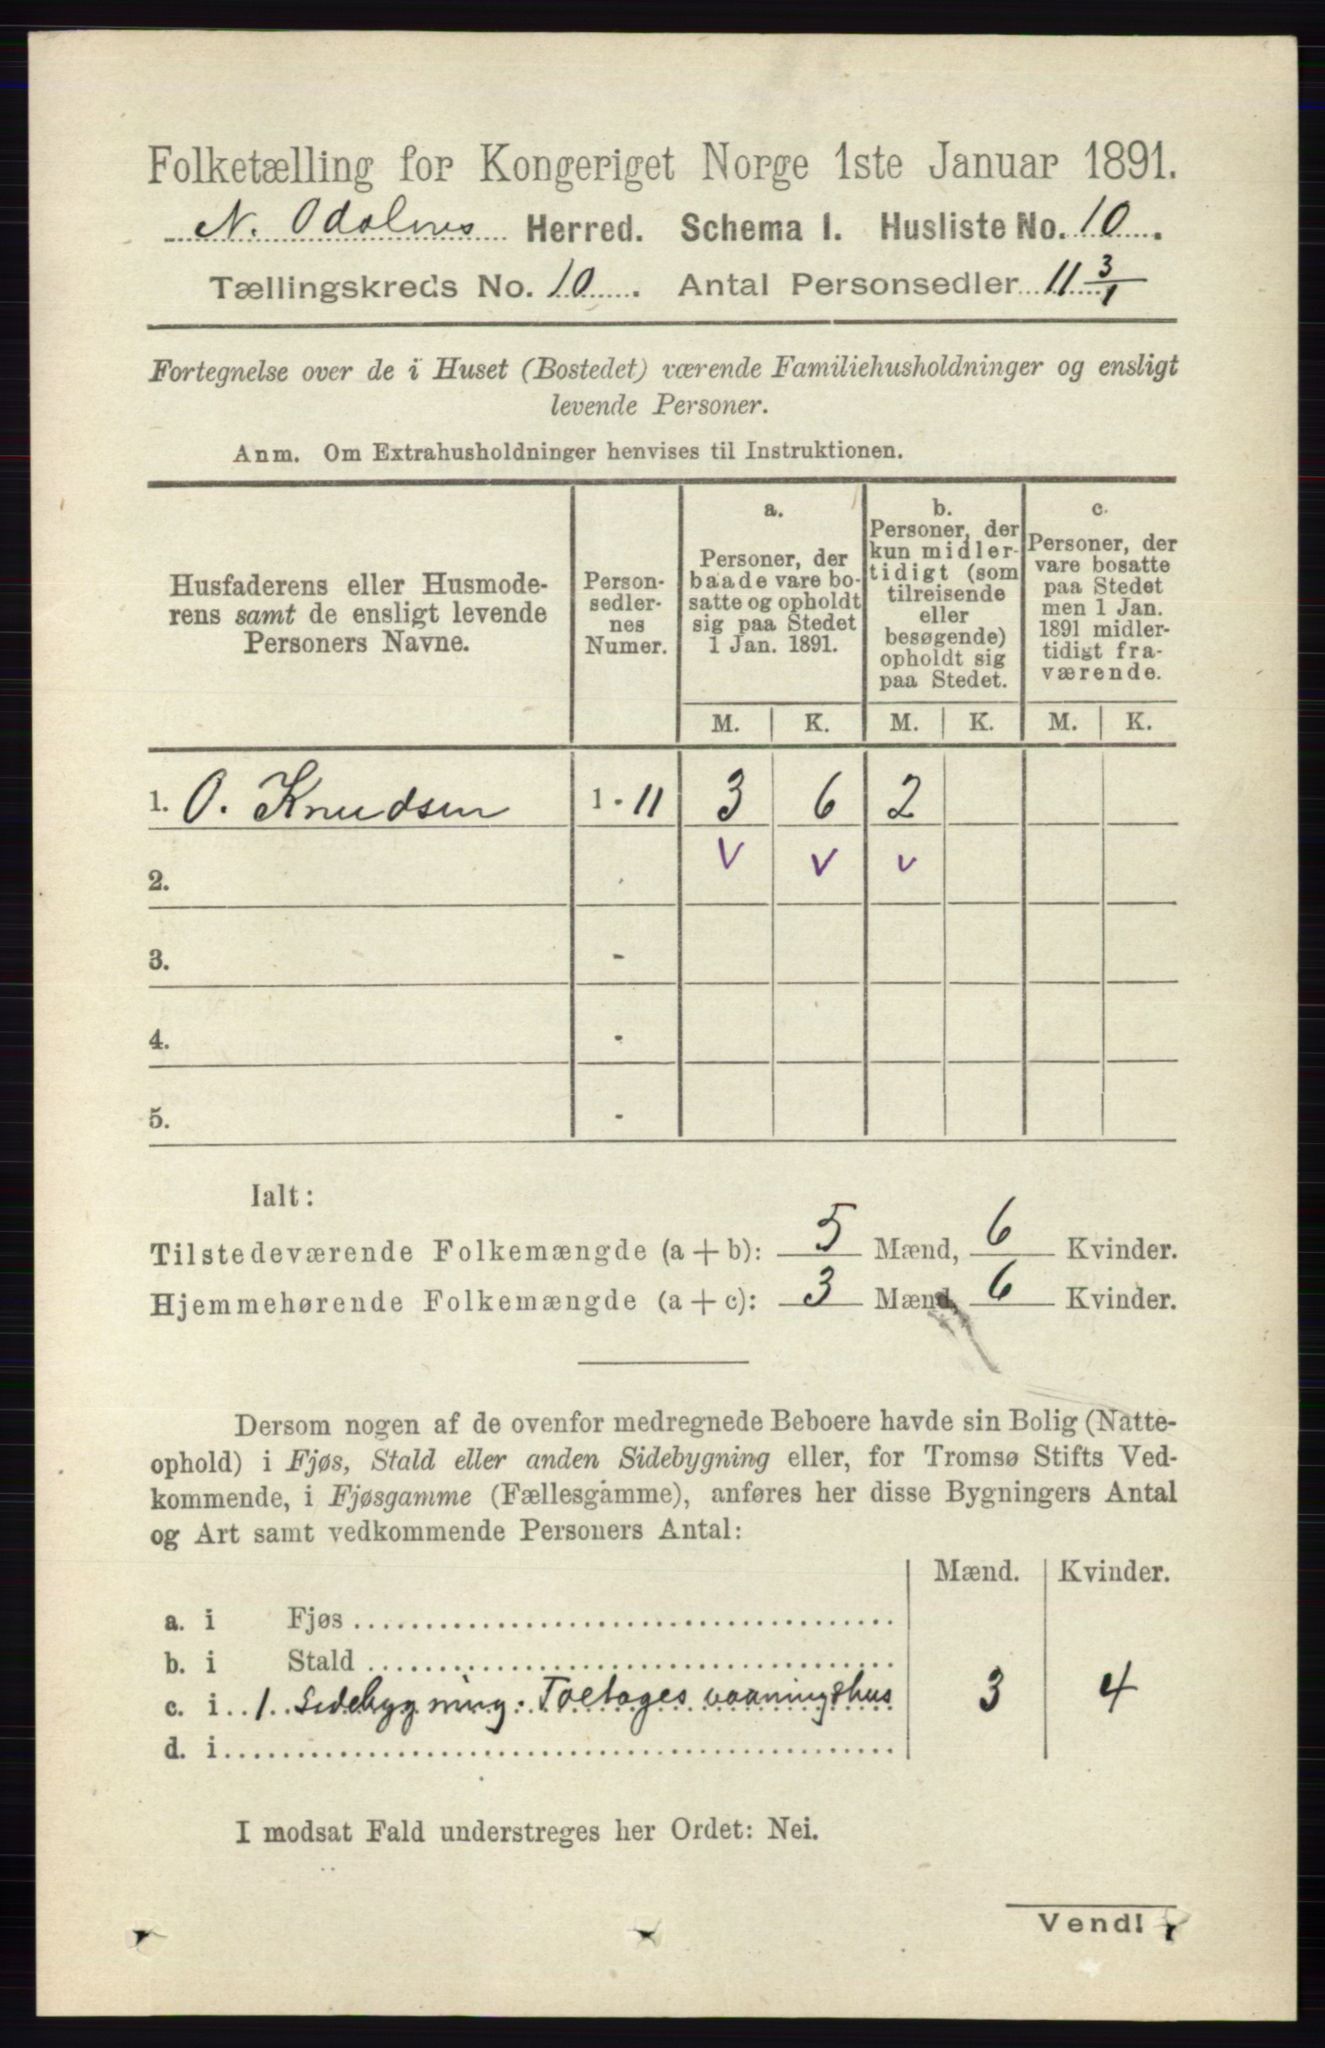 Folketælling for Kongeriget Norge 1ste Januar 1891.
N. Odalnes Herred. Schema I. Husliste No. 10.
Tællingskreds No. 10. Antal Personsedler 11 3/1
Fortegnelse over de i Huset (Bostedet) værende Familiehusholdninger og ensligt
levende Personer.
Anm. Om Extrahusholdninger henvises til Instruktionen.
Husfaderens eller Husmode-
rens samt de ensligt levende
Personers Navne.
Person-
sedler-
nes
Numer.
a.
Personer, der
baade vare bo-
satte og opholdt
sig paa Stedet
1 Jan. 1891.
b.
Personer, der
kun midler-
tidigt (som
tilreisende
eller
besøgende)
opholdt sig
paa Stedet.
c.
Personer, der
vare bosatte
paa Stedet
men 1 Jan.
1891 midler-
tidigt fra-
værende.
M. K. M. K. M. K.
1. O. Knudsen 1 - 11 3 6 2
2. v v v
3. -
4. -
5. -
Ialt:
Tilstedeværende Folkemængde (a + b): 5 Mænd, 6 Kvinder.
Hjemmehørende Folkemængde (a + c): 3 Mænd, 6 Kvinder.
Dersom nogen af de ovenfor medregnede Beboere havde sin Bolig (Natte-
ophold) i Fjøs, Stald eller anden Sidebygning eller, for Tromsø Stifts Ved-
kommende, i Fjøsgamme (Fællesgamme), anføres her disse Bygningers Antal
og Art samt vedkommende Personers Antal:
Mænd. Kvinder.
a. i Fjøs
b. i Stald
c. i 1 Sidebygning. Toetages vaaningshus 3 4
d. i
I modsat Fald understreges her Ordet: Nei.
Vend!